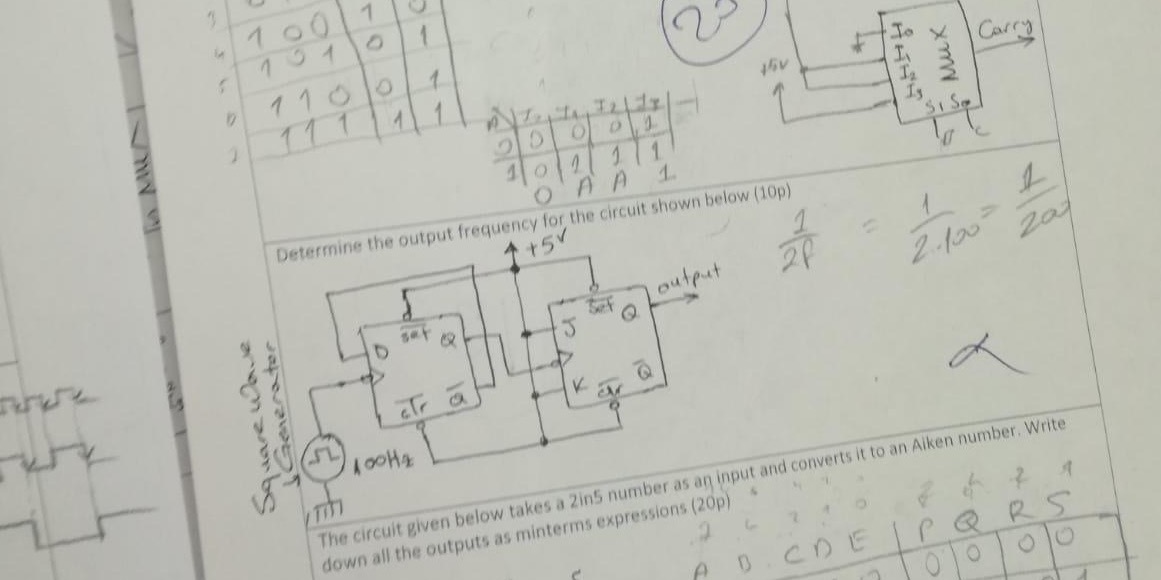 1 0 0 1 0
1 0 1 0 1
1 1 0 0 1
1 1 1 1 1
I0 I1 I2 I3
0 0 0 0 1
1 0 1 1 1
0 A A 1
+5v
I0
I1
I2
I3
MUX
S1 S0
Carry
Determine the output frequency for the circuit shown below (10p)
1/2f = 1/2.100 = 1/200
+5V
D
Set
Q
Clr
Q̅
J
Set
Q
output
K
Clr
Q̅
Square Wave
Generator
100Hz
The circuit given below takes a 2in5 number as an input and converts it to an Aiken number. Write
down all the outputs as minterms expressions (20p)
A B C D E P Q R S
0 0 0 0